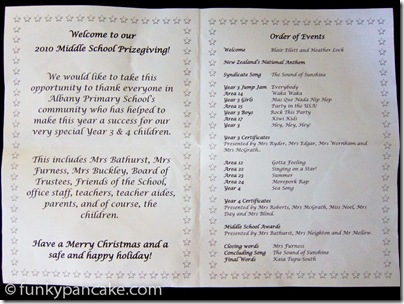 Welcome to our
2010 Middle School Prizegiving!
We would like to take this
opportunity to thank everyone in
Albany Primary School's
community who has helped to
make this year a success for our
very special Year 3 & 4 children.
This includes Mrs Bathurst, Mrs
Furness, Mrs Buckley, Board of
Trustees, Friends of the School,
office staff, teachers, teacher aides,
parents, and of course, the
children.
Have a Merry Christmas and a
safe and happy holiday!
Order of Events
Welcome Blair Ellett and Heather Lock
New Zealand's National Anthem
Syndicate Song The Sound of Sunshine
Year 3 Jump Jam Everybody
Area 14 Waka Waka
Year 3 Girls Mas Que Nada Hip Hop
Area 15 Party in the USA!
Year 3 Boys Rock This Party
Area 17 Kiwi Kids
Year 3 Hey, Hey, Hey!
Year 3 Certificates
Presented by Mrs Ryder, Mrs Edgar, Mrs Wernham and
Mrs McGrath.
Area 12 Gotta Feeling
Area 22 Singing on a Star!
Area 23 Summer
Area 24 Morepork Rap
Year 4 Sea Song
Year 4 Certificates
Presented by Mrs Roberts, Mrs McGrath, Miss Noel, Mrs
Day and Mrs Blind.
Middle School Awards
Presented by Mrs Bathurst, Mrs Heighton and Mr Mellow.
Closing words Mrs Furness
Concluding Song The Sound of Sunshine
Final Words Kaia Tupu-South
© funkypancake.com